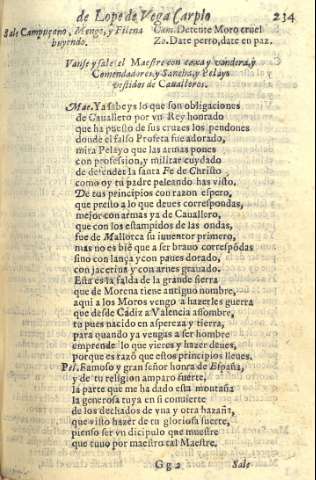 de Lope de Vega Carpio 234
Sale Campuzano, Mengo, y Filena
huyendo.
Cam. Detente Moro cruel
Za. Date perro, date en paz.
Vanse y sale el Maestre con caxa y vandera, y
Comendadores, y Sancho, y Pelayo
vestidos de Caualleros.
Mae. Ya sabeys lo que son obligaciones
de Cauallero por vn Rey honrado
que ha puesto de sus cruzes los pendones
donde el falso Profeta fue adorado,
mira Pelayo que las armas pones
con profession, y militar cuydado
de defender la santa Fe de Christo
como oy tu padre peleando has visto.
De tus principios con razon espero,
que presto a lo que deues correspondas,
mejor con armas ya de Cauallero,
que con los estampidos de las ondas,
fue de Mallorca su inuentor primero,
mas no es biẽ que a ser brauo correspõdas
sino con lança y con paues dorado,
con jacerina y con arnes grauado.
Esta es la falda de la grande sierra
que de Morena tiene antiguo nombre,
aqui a los Moros vengo a hazerles guerra
que desde Cadiz a Valencia assombre,
tu pues nacido en aspereza y tierra,
para quando ya vengas a ser hombre
emprende lo que vieres y hazer deues,
porque es razõ que estos principios lleues.
Pel. Famoso y gran señor honra de España,
y de tu religion amparo fuerte,
la parte que me ha dado esta montaña
la generosa tuya en si conuierte
de los dechados de vna y otra hazaña,
que visto hazer de tu gloriosa suerte,
pienso ser vn dicipulo que muestre
que tuuo por maestro tal Maestre.
Gg 2 Sale